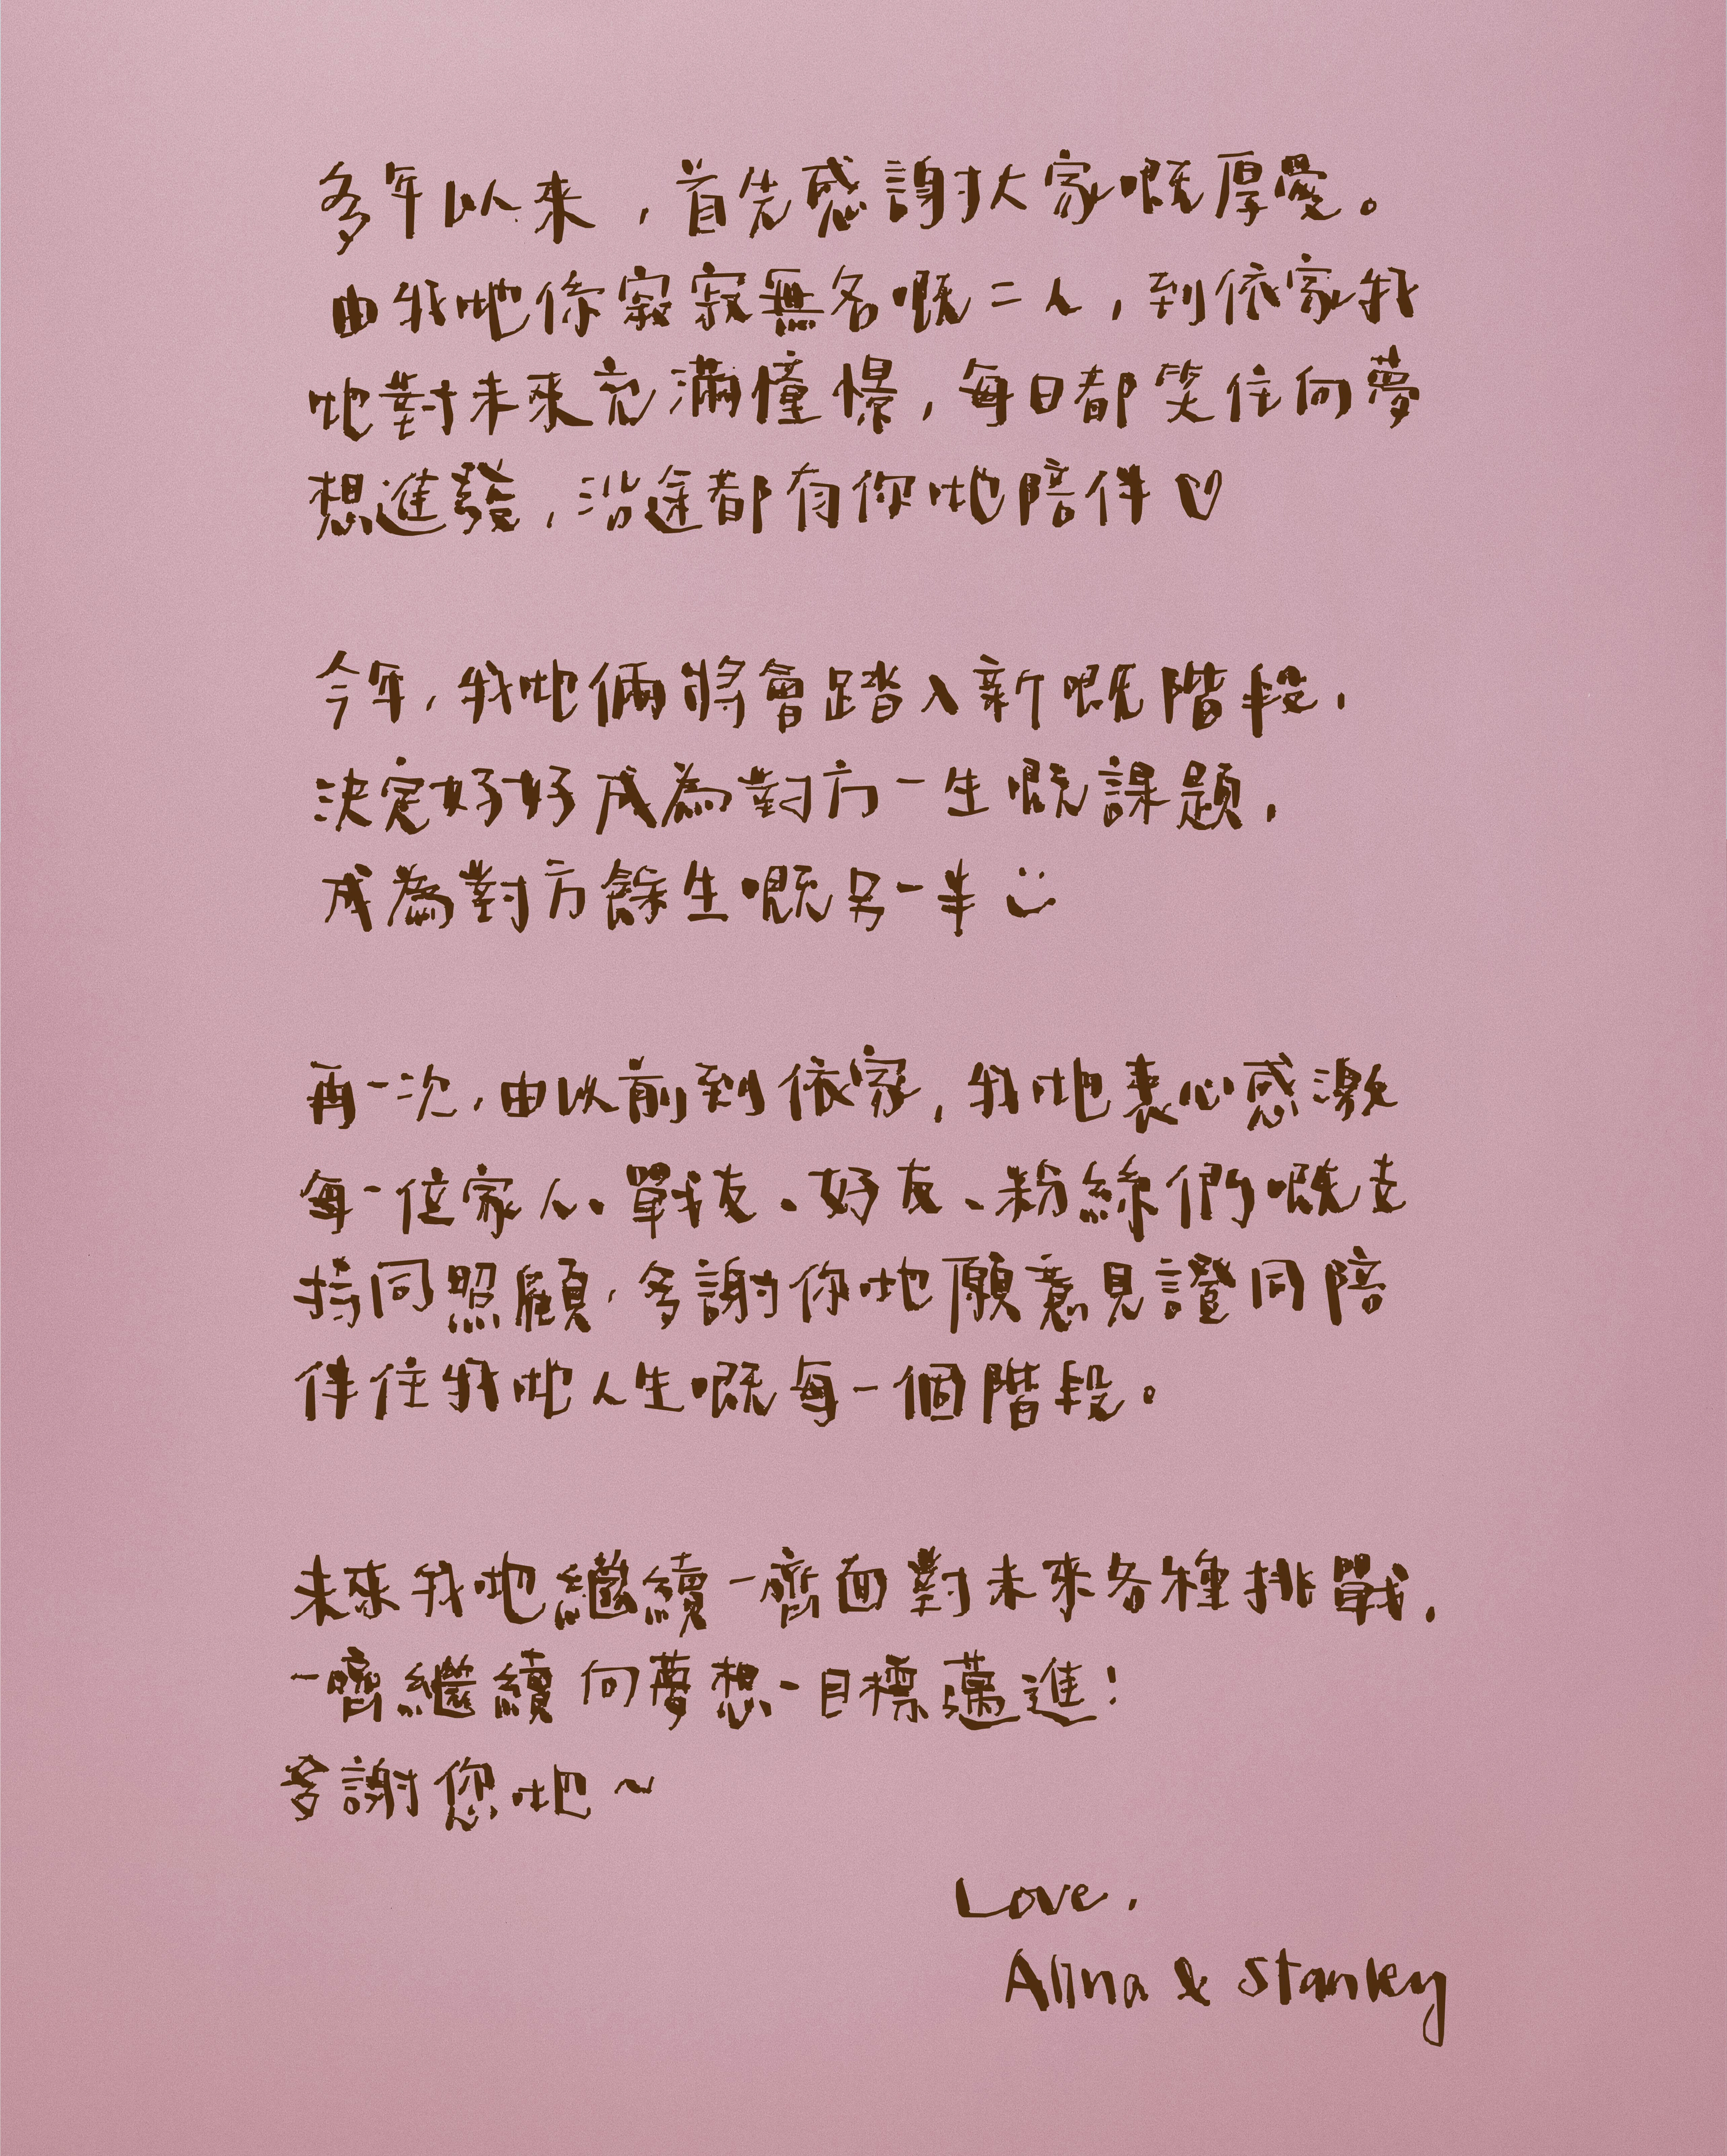 多年以來，首先感謝大家嘅厚愛。
由我哋係寂寂無名嘅二人，到依家我
哋對未來充滿憧憬，每日都笑住向夢
想進發，沿途都有你哋陪伴♡
今年，我哋倆將會踏入新嘅階段，
決定好好成為對方一生嘅課題，
成為對方餘生嘅另一半 :)
再一次，由以前到依家，我哋衷心感激
每一位家人、戰友、好友、粉絲們嘅支
持同照顧，多謝你哋願意見證同陪
伴住我哋人生嘅每一個階段。
未來我哋繼續一齊面對未來各種挑戰，
一齊繼續向夢想一目標邁進！
多謝您哋~
Love,
Alina & Stanley